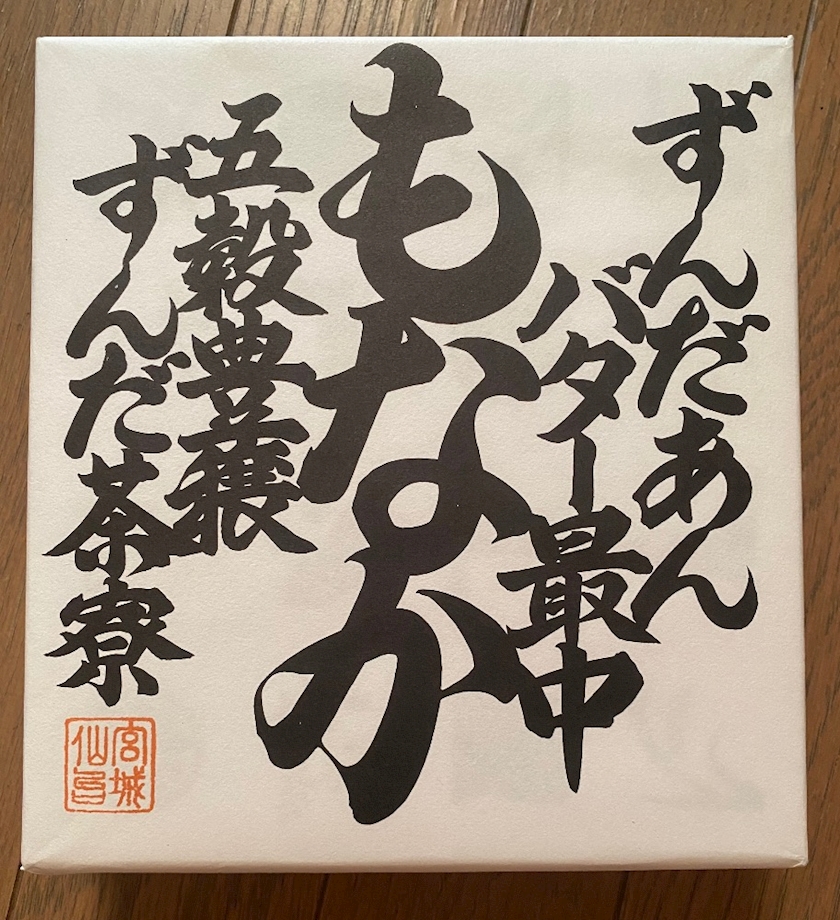 ずんだあん
バター最中
もなか
五穀豊穣
ずんだ茶寮
宮城
仙台